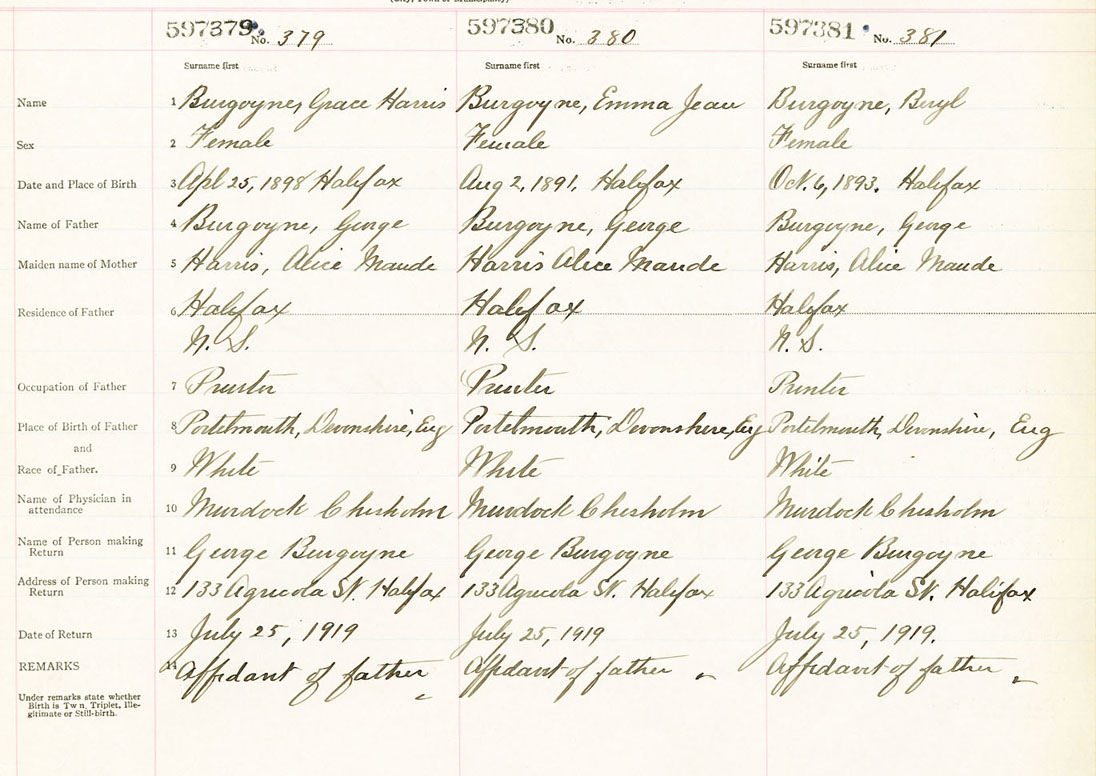 (City, Town or Municipality)
597379 No. 379 597380 No. 380 597381 No. 381
Surname first Surname first Surname first
Name 1 Burgoyne, Grace Harris Burgoyne, Emma Jean Burgoyne, Beryl
Sex 2 Female Female Female
Date and Place of Birth 3 Apl 25, 1898 Halifax Aug 2, 1891. Halifax Oct. 6, 1893. Halifax
Name of Father 4 Burgoyne, George Burgoyne, George Burgoyne, George
Maiden name of Mother 5 Harris, Alice Maude Harris Alice Maude Harris, Alice Maude
Residence of Father 6 Halifax Halifax Halifax
N. S. N. S. N. S.
Occupation of Father 7 Printer Printer Printer
Place of Birth of Father 8 Portelmouth, Devonshire, Eng Portelmouth, Devonshire, Eng Portelmouth, Devonshire, Eng
and
Race of Father. 9 White White White
Name of Physician in
attendance 10 Murdock Chisholm Murdock Chisholm Murdock Chisholm
Name of Person making
Return 11 George Burgoyne George Burgoyne George Burgoyne
Address of Person making
Return 12 133 Agricola St. Halifax 133 Agricola St. Halifax 133 Agricola St. Halifax
Date of Return 13 July 25, 1919 July 25, 1919 July 25, 1919.
REMARKS 14 Affidavit of father Affidavit of father Affidavit of father
Under remarks state whether
Birth is Twin, Triplet, Ille-
gitimate or Still-birth.